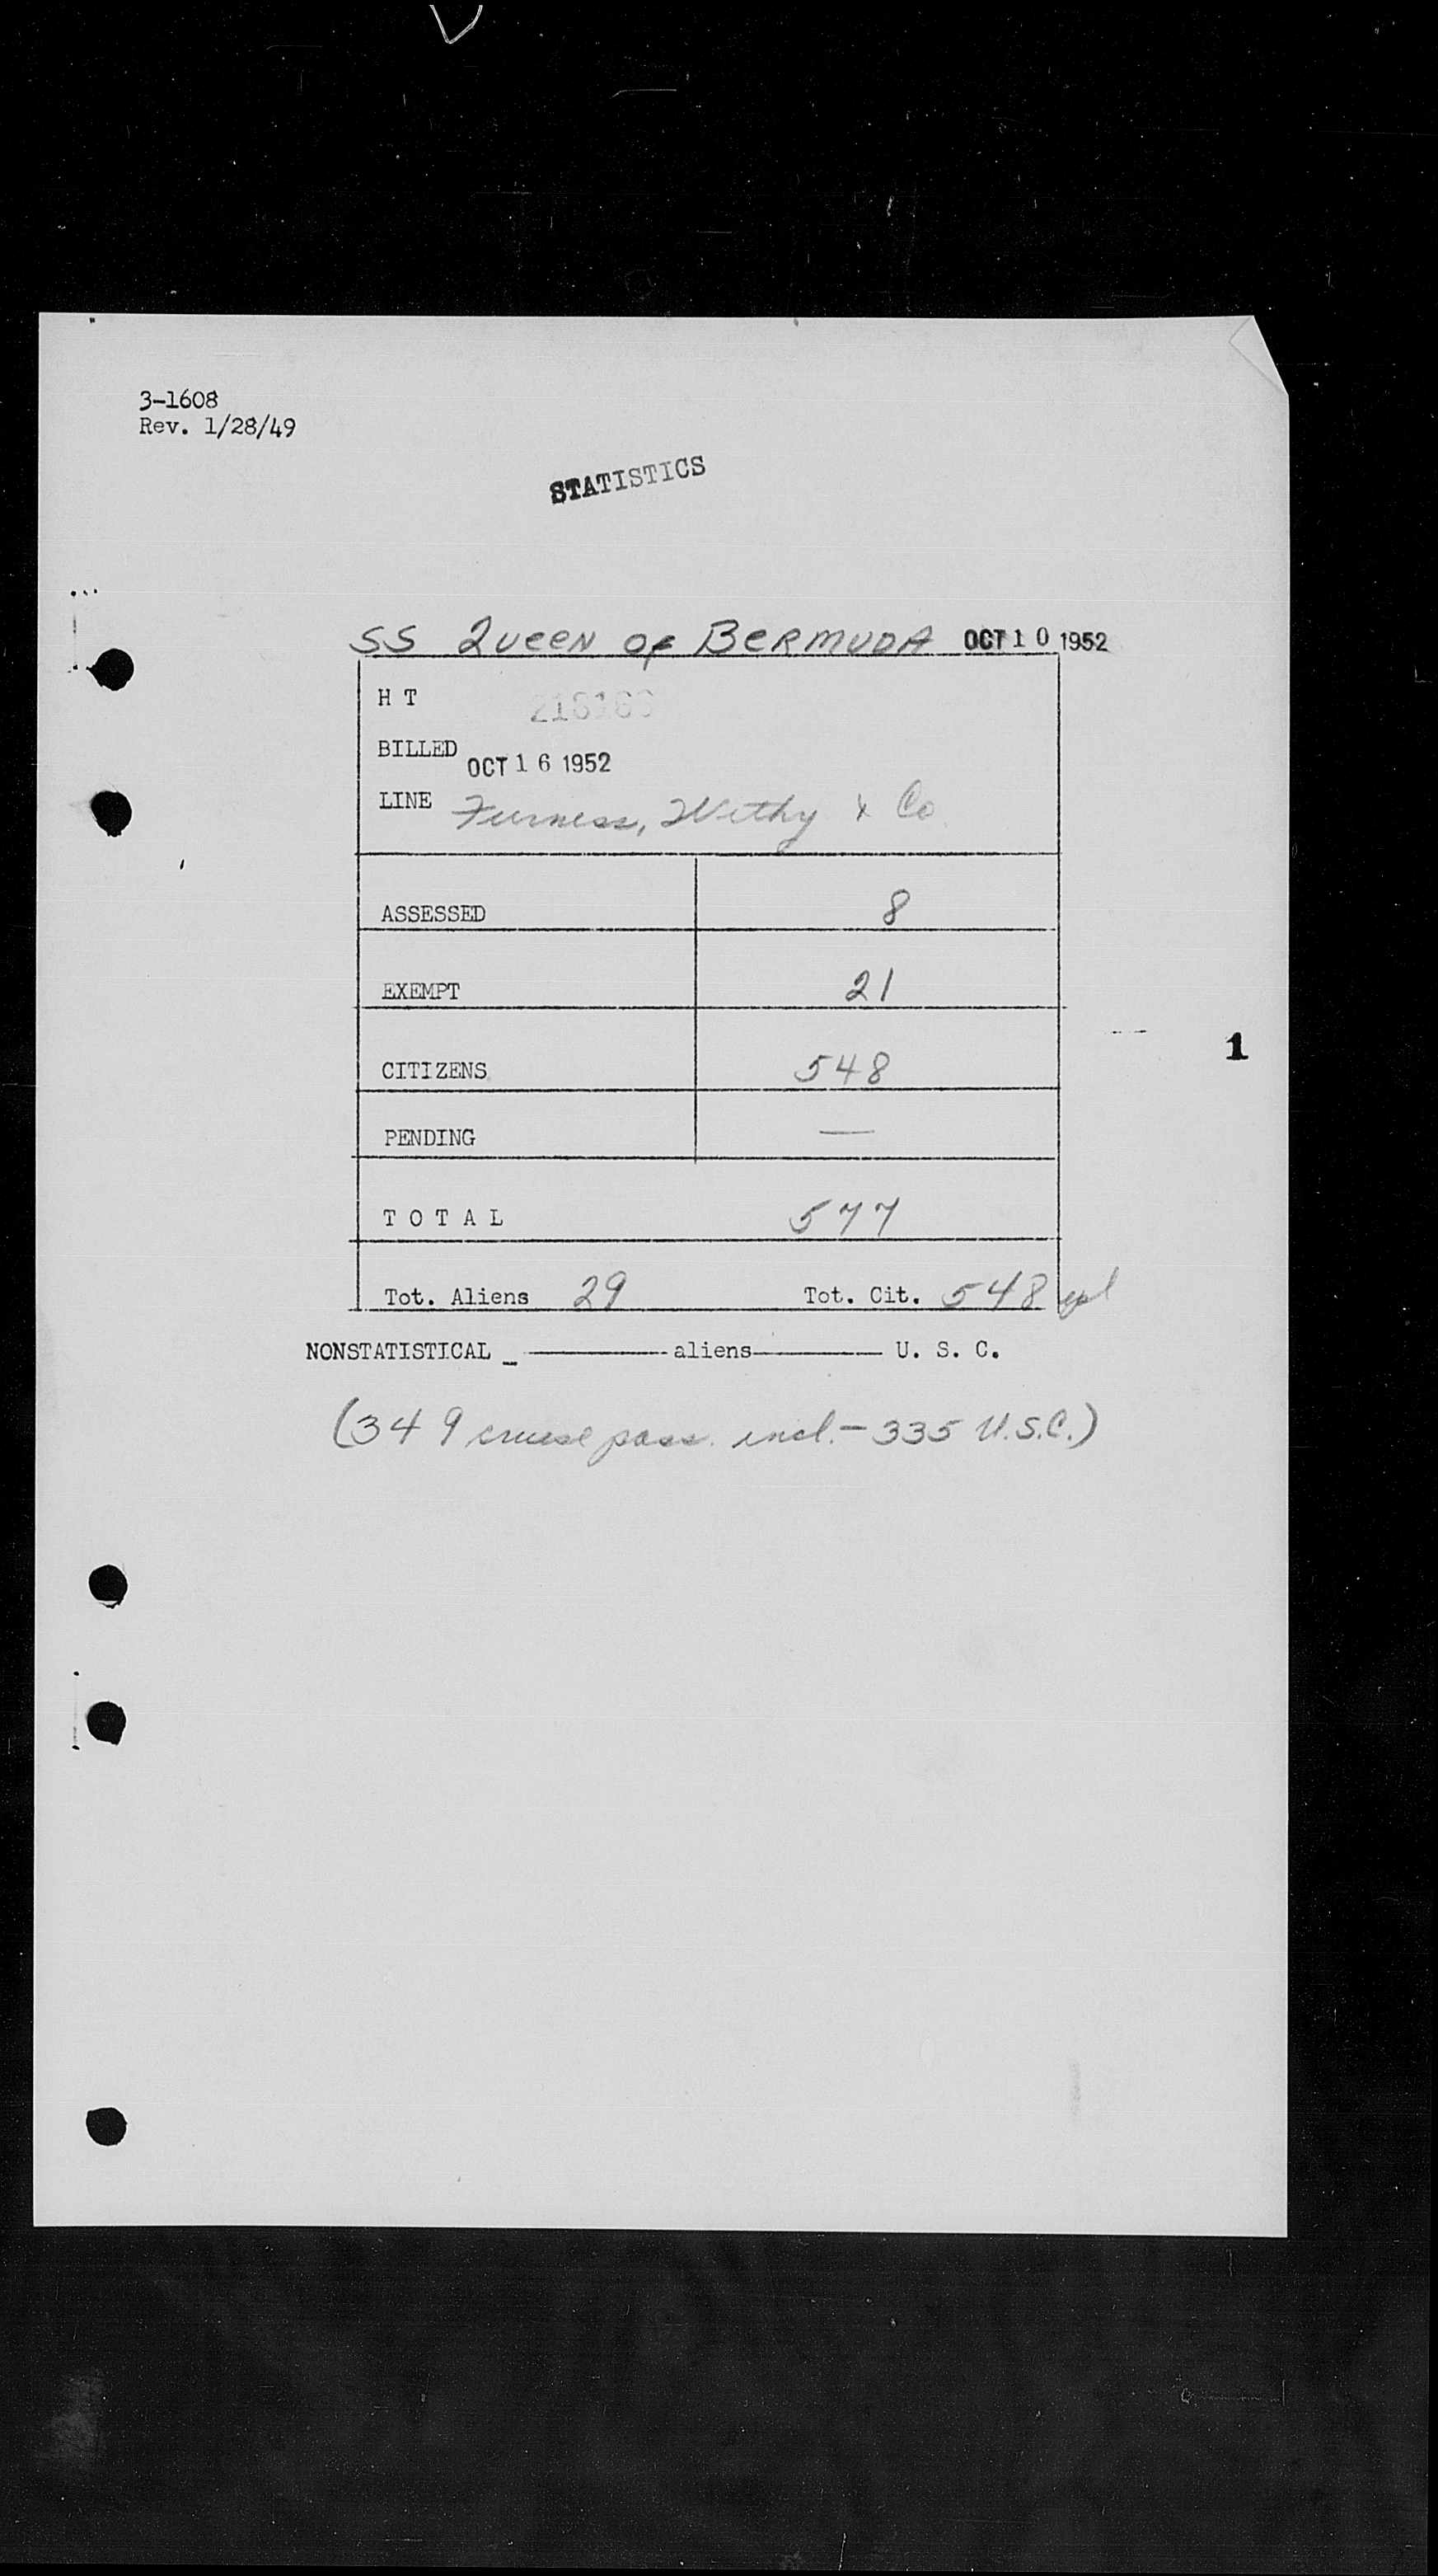 3-1608
Rev. 1/28/49
STATISTICS
SS QUEEN OF BERMUDA OCT 10 1952
H T
BILLED OCT 16 1952
LINE Furness, Withy & Co
ASSESSED 8
EXEMPT 21
1
CITIZENS 548
PENDING —
TOTAL 577
Tot. Aliens 29 Tot. Cit. 548
NONSTATISTICAL _ ——— aliens ——— U. S. C.
(349 cruise pass. incl. - 335 U.S.C.)